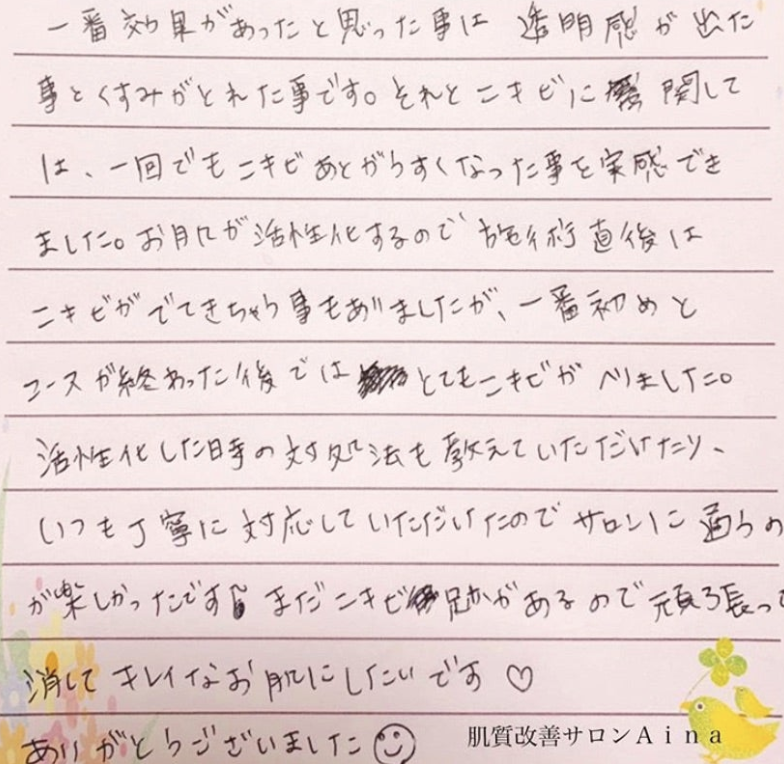 一番効果があったと思った事は 透明感が出た
事とくすみがとれた事です。それとニキビに 関して
は、一回でもニキビあとがうすくなった事を実感でき
ました。お肌が活性化するので 施術直後は
ニキビがでてきちゃう事もありましたが、一番初めと
コースが終わった後では とてもニキビがへりました。
活性化した時の対処法も教えていただけたり、
いつも丁寧に対応していただいたのでサロンに通うの
が楽しかったです まだニキビ跡があるので頑張って
消してキレイなお肌にしたいです♡
ありがとうございました
肌質改善サロンAina